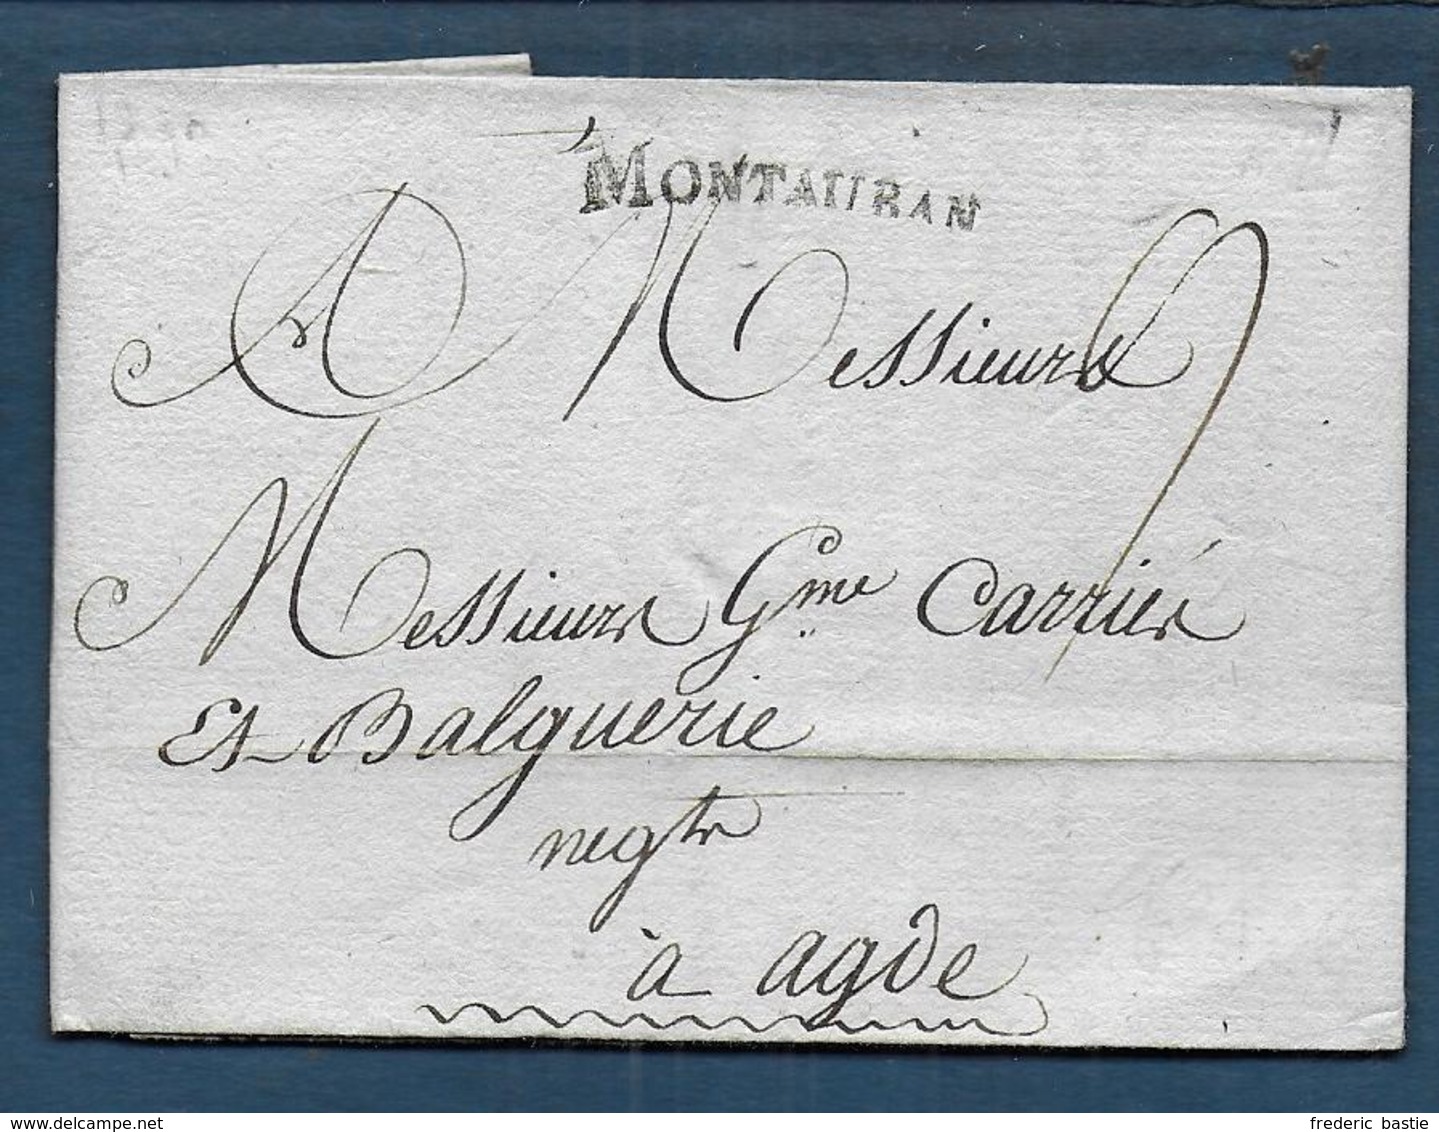 MONTAUBAN
A Messieurs
Messieurs Gme Carrié
Et Balguerie
negts
à agde
delcampe.net
frederic bastie